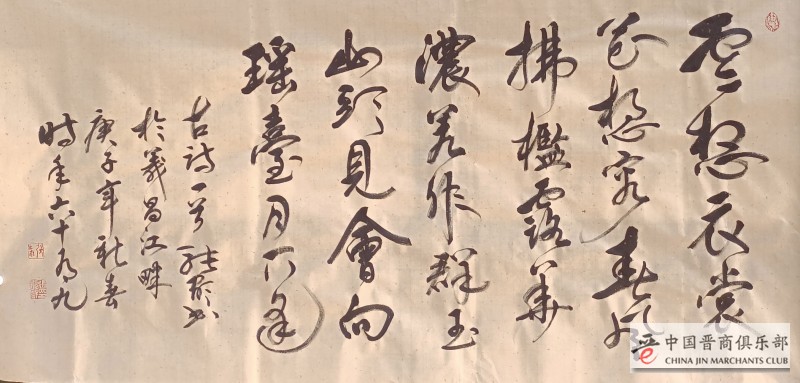 雲想衣裳
花想容春风
拂檻露華
濃若非群玉
山頭見會向
瑶臺月下逢
古詩一首
於義昌江畔
庚子年新春
時年六十有九
中国晋商俱乐部
CHINA JIN MARCHANTS CLUB